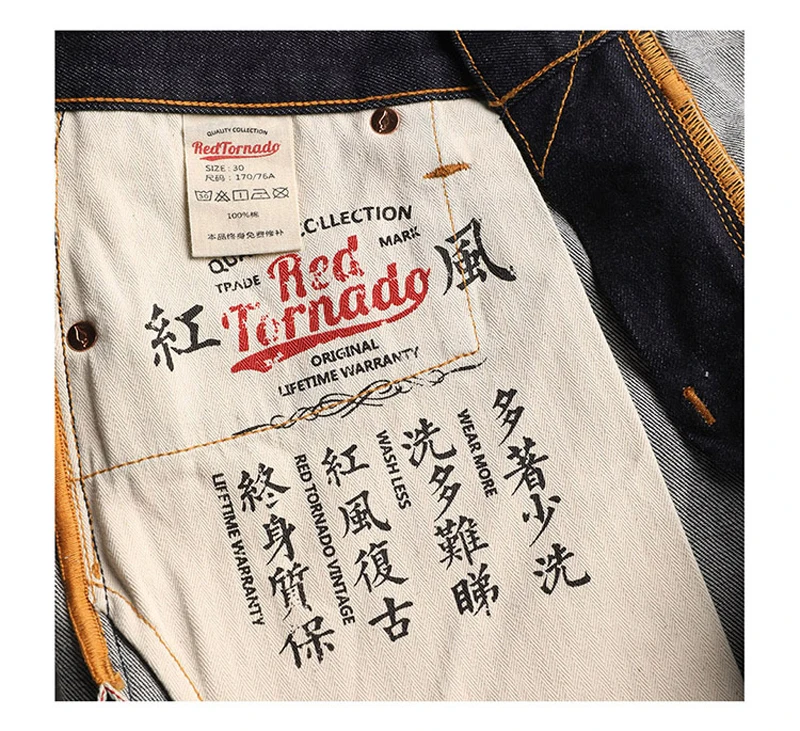 QUALITY COLLECTION
RedTornado
SIZE : 30
尺码 : 170/76A
100%棉
本品终身免费修补
COLLECTION
TRADE MARK
紅 Red 風
Tornado
ORIGINAL
LIFETIME WARRANTY
多著少洗
WEAR MORE
洗多難睇
WASH LESS
紅風復古
RED TORNADO VINTAGE
終身質保
LIFETIME WARRANTY